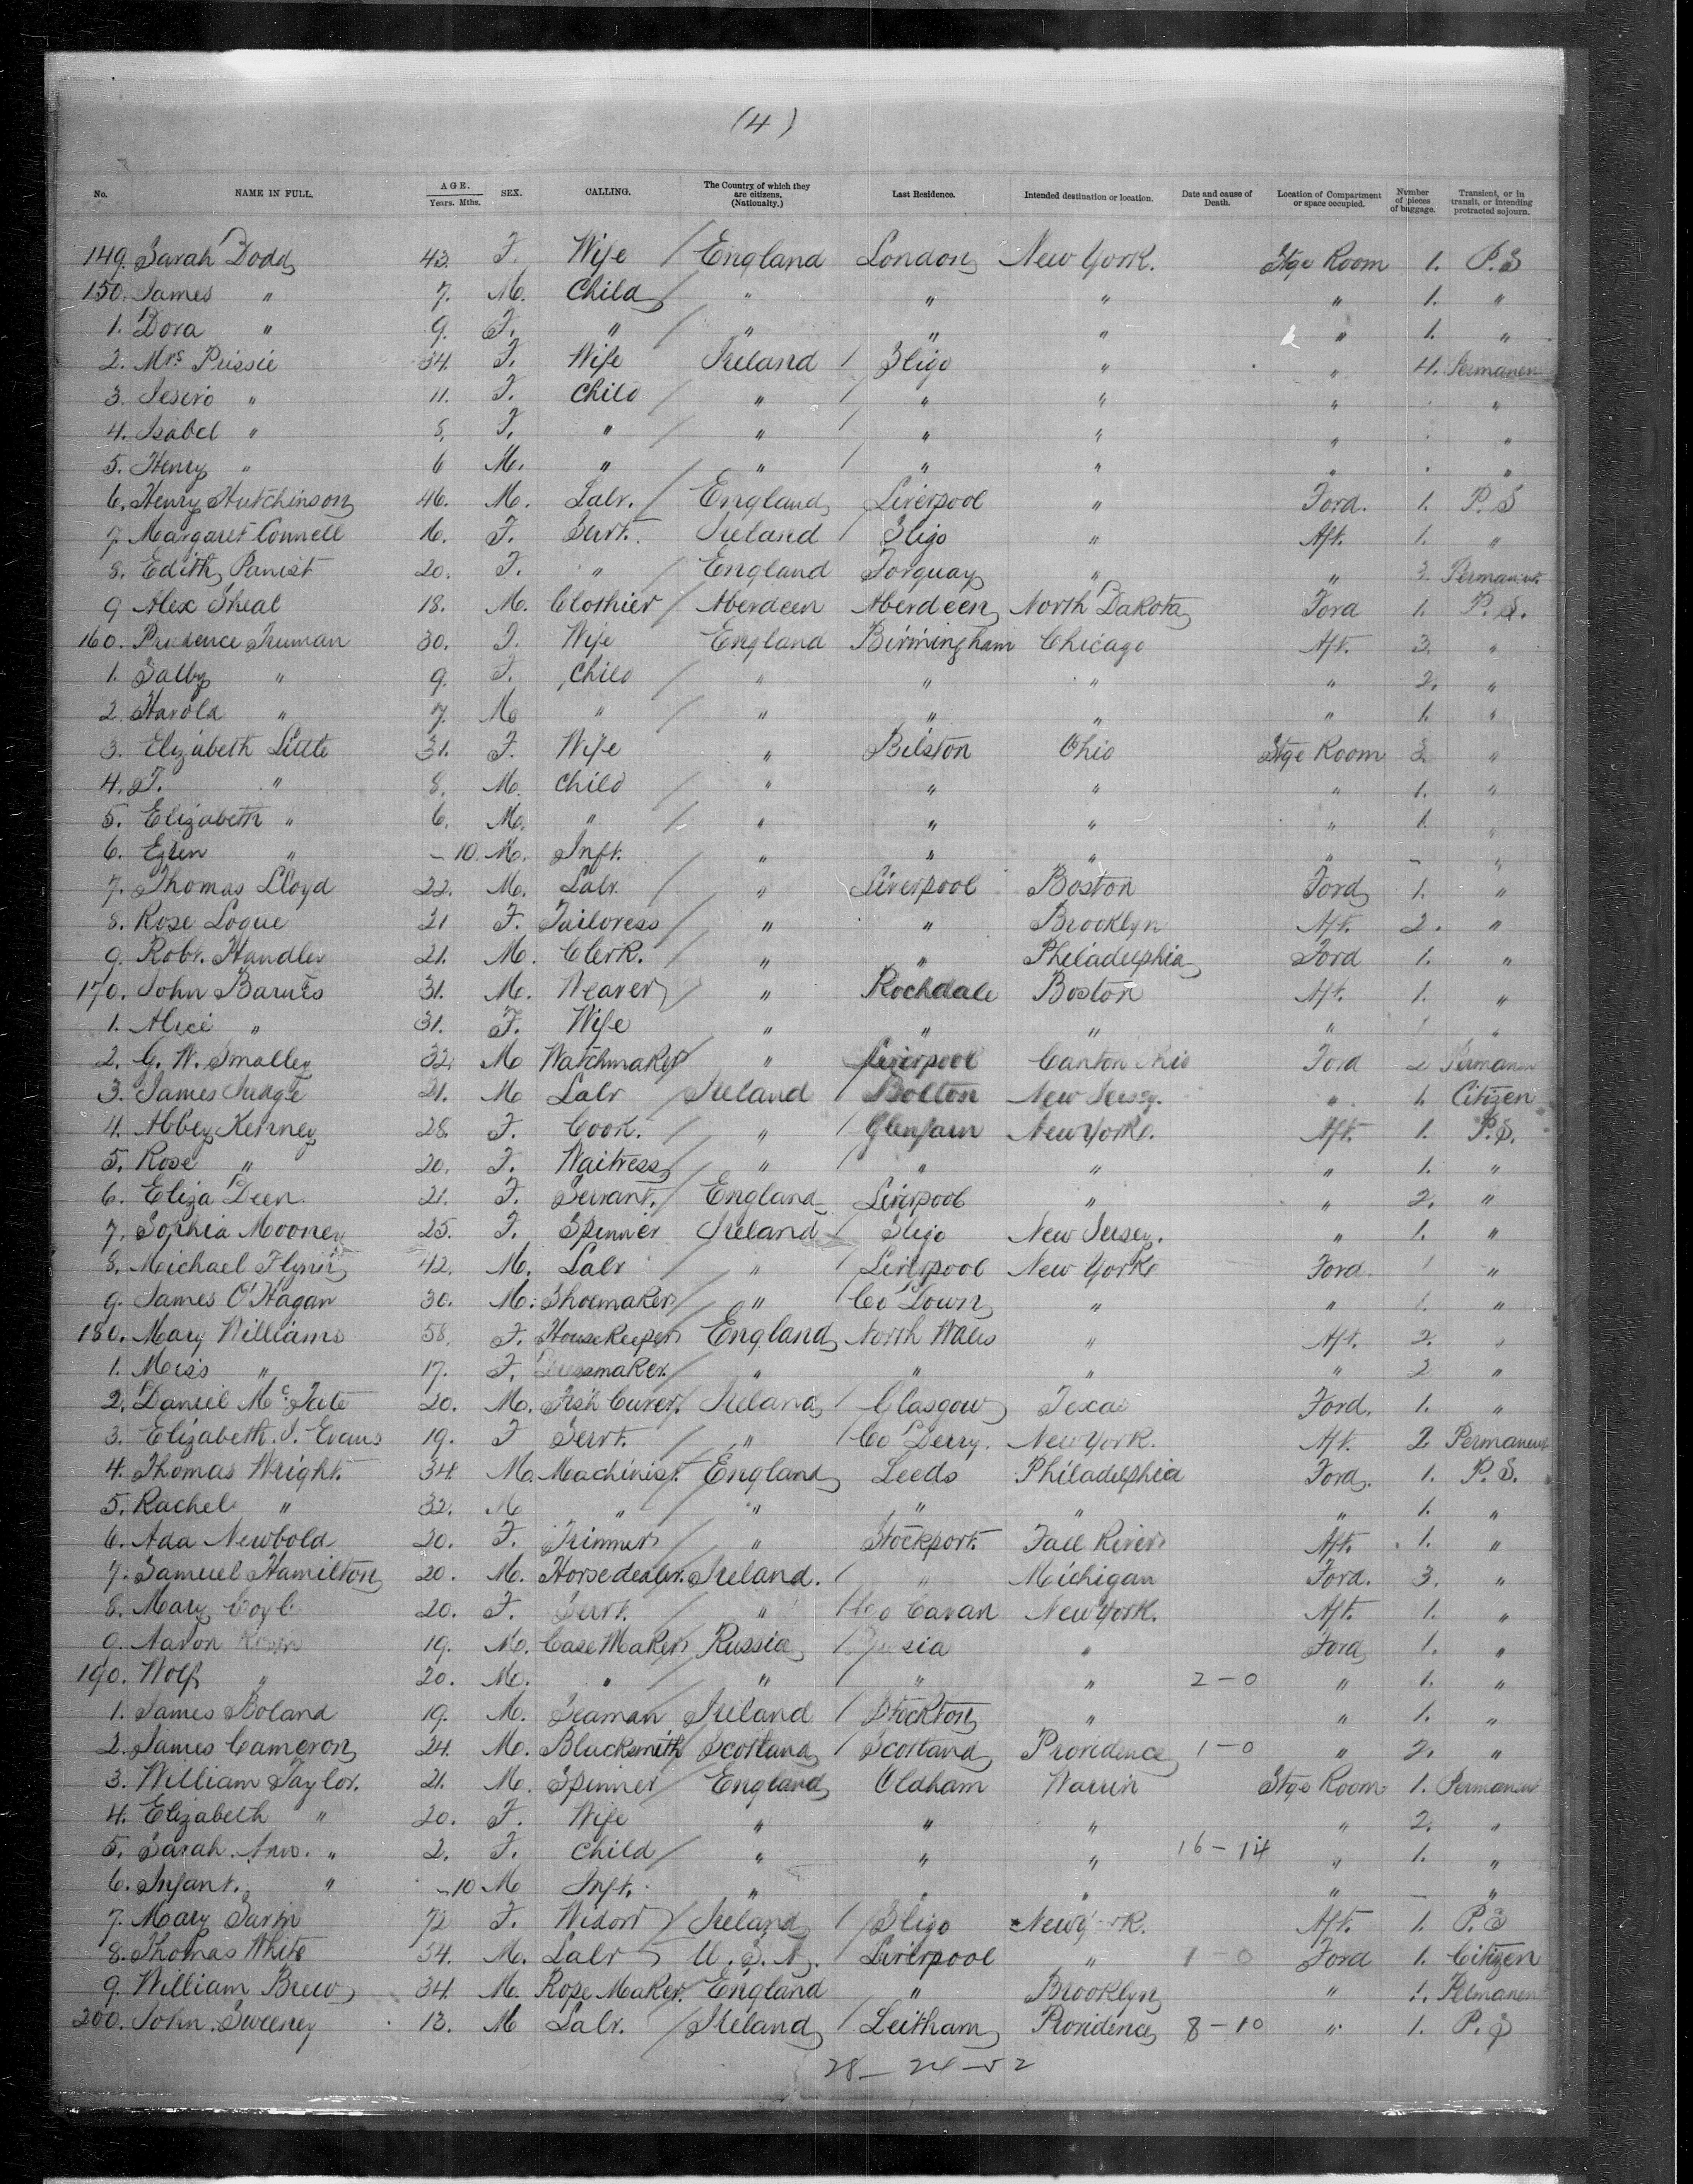 (4)
No. NAME IN FULL. AGE. Years. Mths. SEX. CALLING. The Country of which they are citizens. (Nationalty.) Last Residence. Intended destination or location. Date and cause of Death. Location of Compartment or space occupied. Number of pieces of baggage. Transient, or in transit, or intending protracted sojourn.
149. Sarah Dodd 43. F. Wife / England London New York. Stge Room 1. P.S
150. James " 7. M. Child / " " " " 1. "
1. Dora " 9. F. " / " " " " 1. "
2. Mrs Prissie 34. F. Wife Ireland / Sligo " " 4. Permanen
3. " 11. F. Child / " / " " " "
4. Isabel " 8. F. " / " / " " " "
5. Henry " 6 M. " / " / " " " "
6. Henry Hutchinson 46. M. Labr. / England Liverpool " Ford. 1. P.S
7. Margaret Connell 16. F. Servt. Ireland / Sligo " Aft. 1. "
8. Edith 20. F. " England Torquay " " 3. Permanent
9 Alex Sheal 18. M. Clothier / Aberdeen Aberdeen North Dakota Ford 1. P.S.
160. Prudence Truman 30. F. Wife England Birmingham Chicago Aft. 3. "
1. " 9. F. Child / " " " " 2. "
2. Harold " 7. M " / " " " " 1. "
3. Elizabeth Little 31. F. Wife " Bilston Ohio Stge Room 3 "
4. T. " 8. M. Child / " " " " 1. "
5. Elizabeth " 6. M. " / " " " " 1. "
6. " – 10. M. Inft. " " " " – "
7. Thomas Lloyd 22. M. Labr / " Liverpool Boston Ford 1. "
8. Rose Logue 21 F. Tailoress / " " Brooklyn Aft. 2. "
9. Robt. Handley 21. M. Clerk. / " " Philadelphia Ford 1. "
170. John Barnes 31. M. Weaver / " Rochdale Boston Aft. 1. "
1. Alice " 31. F. Wife " " " " 1 "
2. G. W. Smalley 32. M Watchmaker / " Liverpool Canton Ohio Ford 2 Permanen
3. James Judge 21. M Labr / Ireland / Bolton New Jersey. " 1. Citizen
4. Abbey Kerney 28. F. Cook. / " / Glenfarn New York. Aft. 1. P.S.
5. Rose " 20. F. Waitress / " / " " " 1. "
6. Eliza Deen. 21. F. Servant. / England Liverpool " " 2. "
7. Sophia Mooney 25. F. Spinner Ireland / Sligo New Jersey. " 1. "
8. Michael Flynn 42. M. Labr / " / Liverpool New York Ford. 1 "
9. James O'Hagan 30. M. Shoemaker / " / Co Down " " 1. "
180. Mary Williams 58. F. Housekeeper / England North Wales " Aft. 2. "
1. Miss " 17. F. Dressmaker. / " " " " 2 "
2. Daniel Mc.Fate 20. M. Fish Curer. / Ireland / Glasgow Texas Ford. 1. "
3. Elizabeth. J. Evans 19. F Servt. / " / Co Derry. New York. Aft. 2 Permanent
4. Thomas Wright. 34. M. Machinist. / England Leeds Philadelphia Ford. 1. P.S.
5. Rachel " 32. M " / " " " " 1. "
6. Ada Newbold 20. F. Trimmer / " Stockport. Fall River Aft. 1. "
7. Samuel Hamilton 20. M. Horsedealer. Ireland. / " Michigan Ford. 3. "
8. Mary Coyle 20. F. Servt. / " / Co Cavan New York. Aft. 1. "
9. Aaron 19. M. Case Maker / Russia / Russia " Ford 1. "
190. Wolf " 20. M. " / " / " " 2 – 0 " 1. "
1. James Boland 19. M. Seaman Ireland / Stockton " " 1. "
2. James Cameron 24. M. Blacksmith / Scotland / Scotland Providence 1 – 0 " 2. "
3. William Taylor. 21. M. Spinner / England Oldham Warrin Stge Room 1. Permanen
4. Elizabeth " 20. F. Wife " " " " 2. "
5. Sarah. Ann. " 2. F. Child / " " " 16 – 14 " 1. "
6. Infant. " – 10 M Inft. " " " " – "
7. Mary 72 F. Widow / Ireland / Sligo New York. Aft. 1. P.S
8. Thomas White 54. M. Labr / U.S.A. / Liverpool " 1 – 0 Ford 1. Citizen
9. William Brew 34. M. Rope Maker. / England " Brooklyn " 1. Permanen
200. John Sweeney 13. M Labr. / Ireland / Leitham Providence 8 – 10 " 1. P.S
28 – 24 – 52